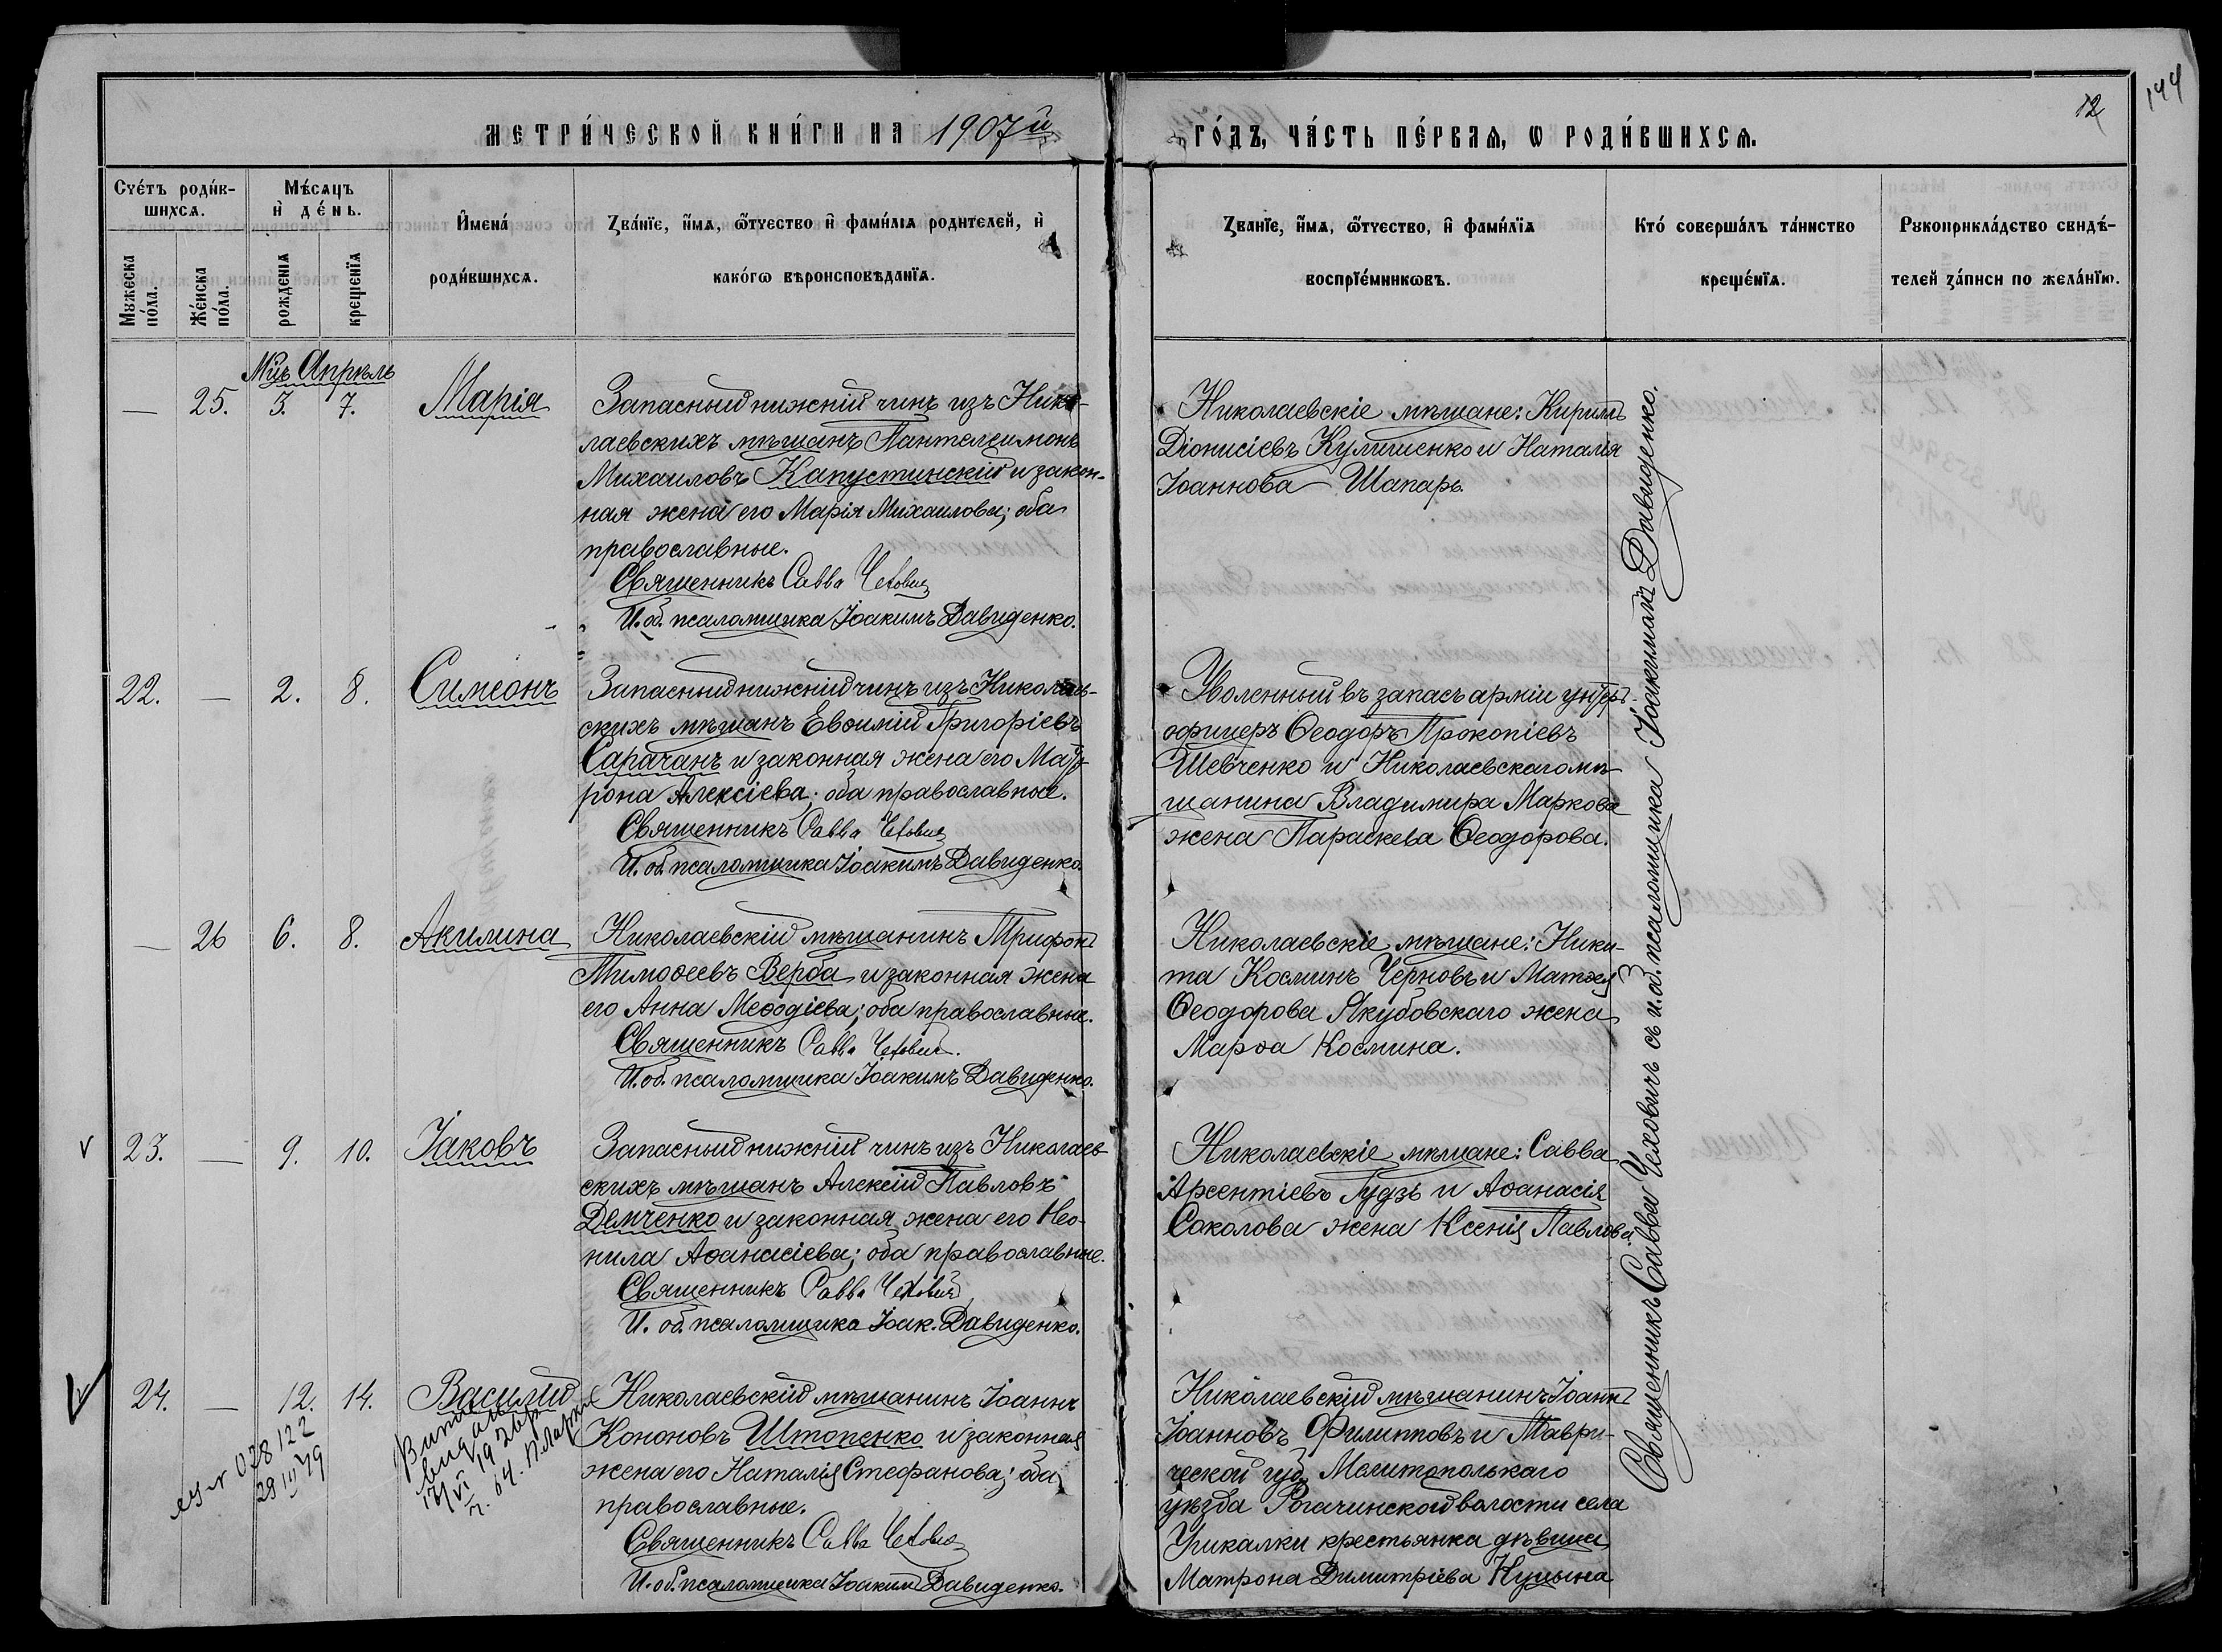 144
12
МЕТРИ́ЧЕСКОЙ КНИ́ГИ НА 1907й
ГО́ДЪ, ЧА́СТЬ ПЕ́РВАѦ, Ѡ РОДИ́ВШИХСѦ.
Счётъ роди́в-
шихсѧ.
Мꙋжеска по́ла.
Же́нска по́ла.
Мѣ́сѧцъ
и҆ де́нь.
рожденїѧ
крещенїѧ
И҆мена́
роди́вшихсѧ.
Зва́нїе, и҆́мѧ, ѻ҆́тчество и҆ фами́лїѧ родителей, и҆
како́гѡ вѣроисповѣданїѧ.
Зва́нїе, и҆́мѧ, ѻ҆́тчество, и҆ фами́лїѧ
воспрїе́мникѡвъ.
Кто́ соверша́лъ та́инство
креще́нїѧ.
Рꙋкоприкла́дство свидѣ́-
телей за́писи по жела́нїю.
Мцъ Апрѣль
— 25. 3. 7. Марія
Запасный нижній чинъ изъ Нико-
лаевскихъ мѣщанъ Пантелеимонъ
Михаиловъ Капустинскій и закон-
ная жена его Марія Михаилова; оба
православные.
Священникъ Савва Чехович
И. об. псаломщика Іоакимъ Давиденко.
Николаевскіе мѣщане: Кириллъ
Діонисіевъ Кулишенко и Наталія
Іоаннова Шапарь.
22. — 2. 8. Симеонъ
Запасный нижній чинъ изъ Николаев-
скихъ мѣщанъ Евѳимій Григоріевъ
Сарачанъ и законная жена его Мат-
рона Алексіева; оба православные.
Священникъ Савва Чехович
И. об. псаломщика Іоакимъ Давиденко.
Уволенный въ запасъ арміи унтеръ-
офицеръ Ѳеодоръ Прокопіевъ
Шевченко и Николаевскаго мѣ-
щанина Владимира Маркова
жена Параскева Ѳеодорова.
— 26 6. 8. Акилина
Николаевскій мѣщанинъ Трифонъ
Тимоѳеевъ Верба и законная жена
его Анна Меѳодіева; оба православные.
Священникъ Савва Чехович.
И. об. псаломщика Іоакимъ Давиденко.
Николаевскіе мѣщане: Ники-
та Косминъ Черновъ и Матѳея
Ѳеодорова Якубовскаго жена
Марѳа Космина.
v 23. — 9. 10. Іаковъ
Запасный нижній чинъ изъ Николаев-
скихъ мѣщанъ Алексій Павловъ
Демченко и законная жена его Нео-
нила Аѳанасіева; оба православные.
Священникъ Савва Чехович
И. об. псаломщика Іоак. Давиденко.
Николаевскіе мѣщане: Савва
Арсентіевъ Гудзь и Аѳанасія
Соколова жена Ксенія Павлова.
V 24. — 12. 14. Василій
Николаевскій мѣщанинъ Іоаннъ
Кононовъ Штопенко и законная
жена его Наталія Стефанова; оба
православные.
Священникъ Савва Чехович
И. об. псаломщика Іоакимъ Давиденко.
078122
29 IV 79
видан
Николаевскій мѣщанинъ Іоаннъ
Іоанновъ Филипповъ и Таври-
ческой губ. Мелитопольскаго
уѣзда Рогачинской волости села
Ушкалки крестьянка дѣвица
Матрона Димитріева
Священникъ Савва Чеховичъ съ и. об. псаломщика Іоакимомъ Давиденко.